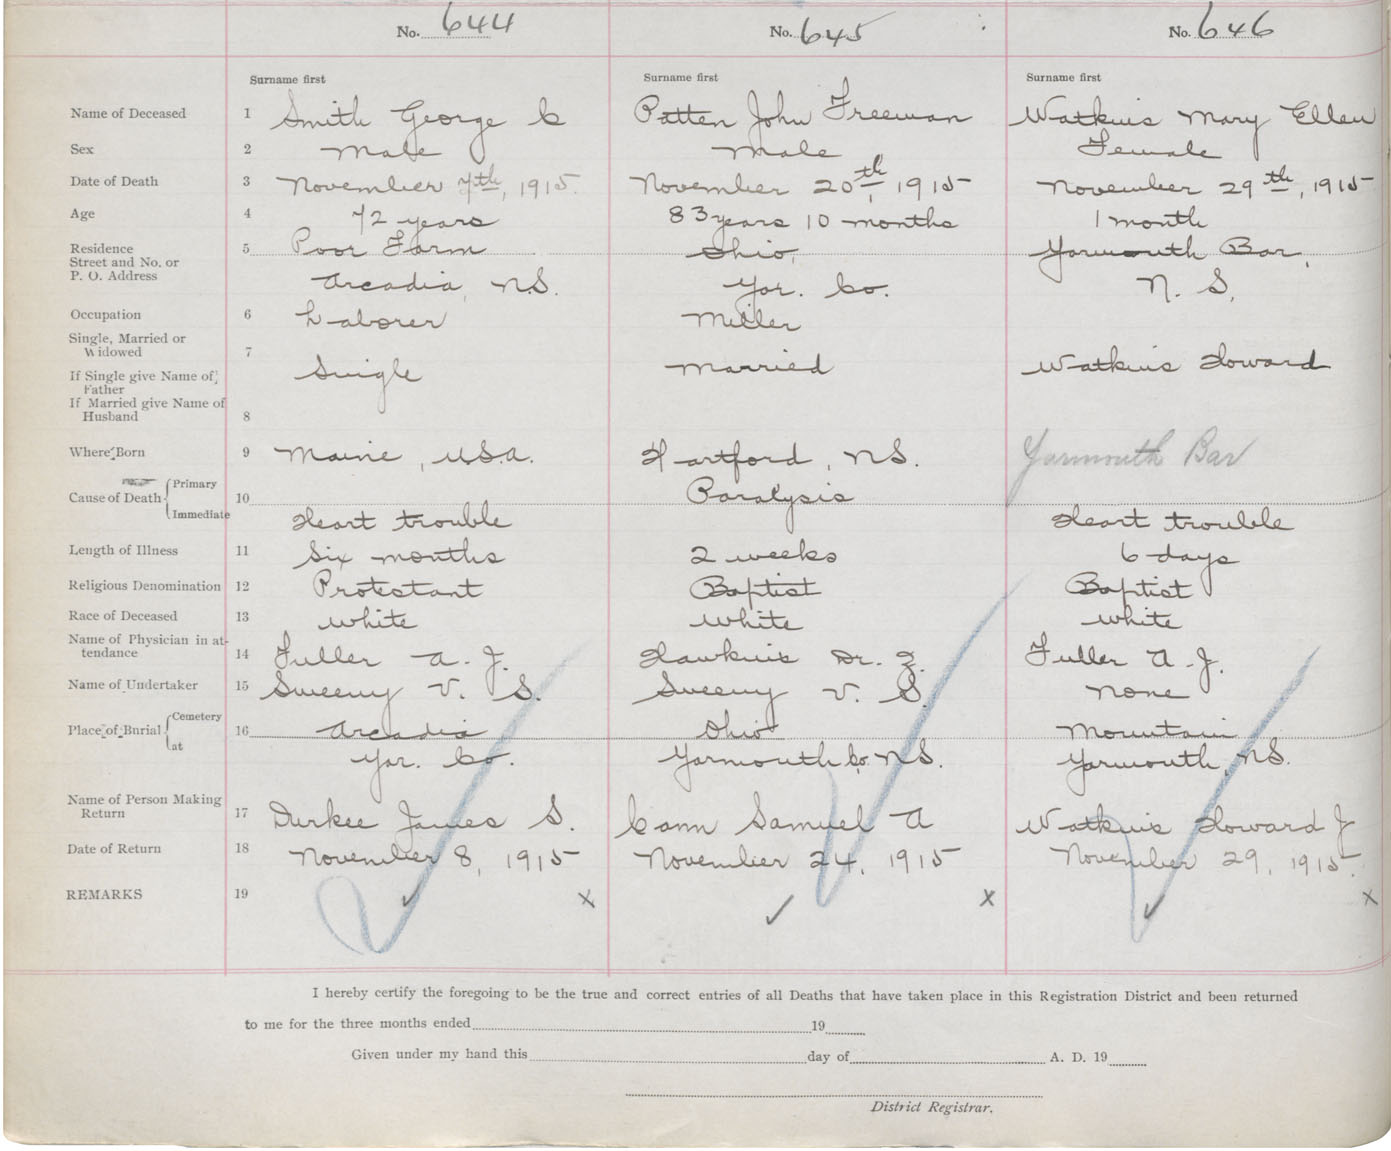 No. 644 No. 645 No. 646
Surname first Surname first Surname first
Name of Deceased 1 Smith George C Patten John Freeman Watkins Mary Ellen
Sex 2 Male Male Female
Date of Death 3 November 7th, 1915. November 20th, 1915 November 29th, 1915
Age 4 72 years 83 years 10 months 1 month
Residence 5 Poor Farm Ohio, Yarmouth Bar,
Street and No. or
P. O. Address Arcadia, N.S. Yar. Co. N. S.
Occupation 6 Laborer Miller
Single, Married or
Widowed 7 Single Married Watkins Howard
If Single give Name of
Father
If Married give Name of
Husband 8
Where Born 9 Maine, U.S.A. Hartford, N.S. Yarmouth Bar
Cause of Death Primary 10 Paralysis
Immediate Heart trouble Heart trouble
Length of Illness 11 Six months 2 weeks 6 days
Religious Denomination 12 Protestant Baptist Baptist
Race of Deceased 13 white white white
Name of Physician in at-
tendance 14 Fuller A. J. Hawkins Dr. Z. Fuller A. J.
Name of Undertaker 15 Sweeny V. S. Sweeny V. S. None
Place of Burial Cemetery 16 Arcadia Ohio Mountain
at Yar. Co. Yarmouth Co. N.S. Yarmouth, N.S.
Name of Person Making
Return 17 Durkee James S. Cann Samuel A Watkins Howard J
Date of Return 18 November 8, 1915 November 24, 1915 November 29, 1915.
REMARKS 19 ✓ x ✓ x ✓ x
I hereby certify the foregoing to be the true and correct entries of all Deaths that have taken place in this Registration District and been returned
to me for the three months ended 19
Given under my hand this day of A. D. 19
District Registrar.